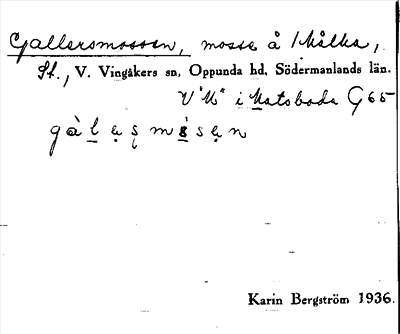 Gallersmossen, mosse å Skålha,
St., V. Vingåkers sn, Oppunda hd, Södermanlands län.
V "M" i Matsboda G 65
gàlẹsmsẹn
Karin Bergström 1936.